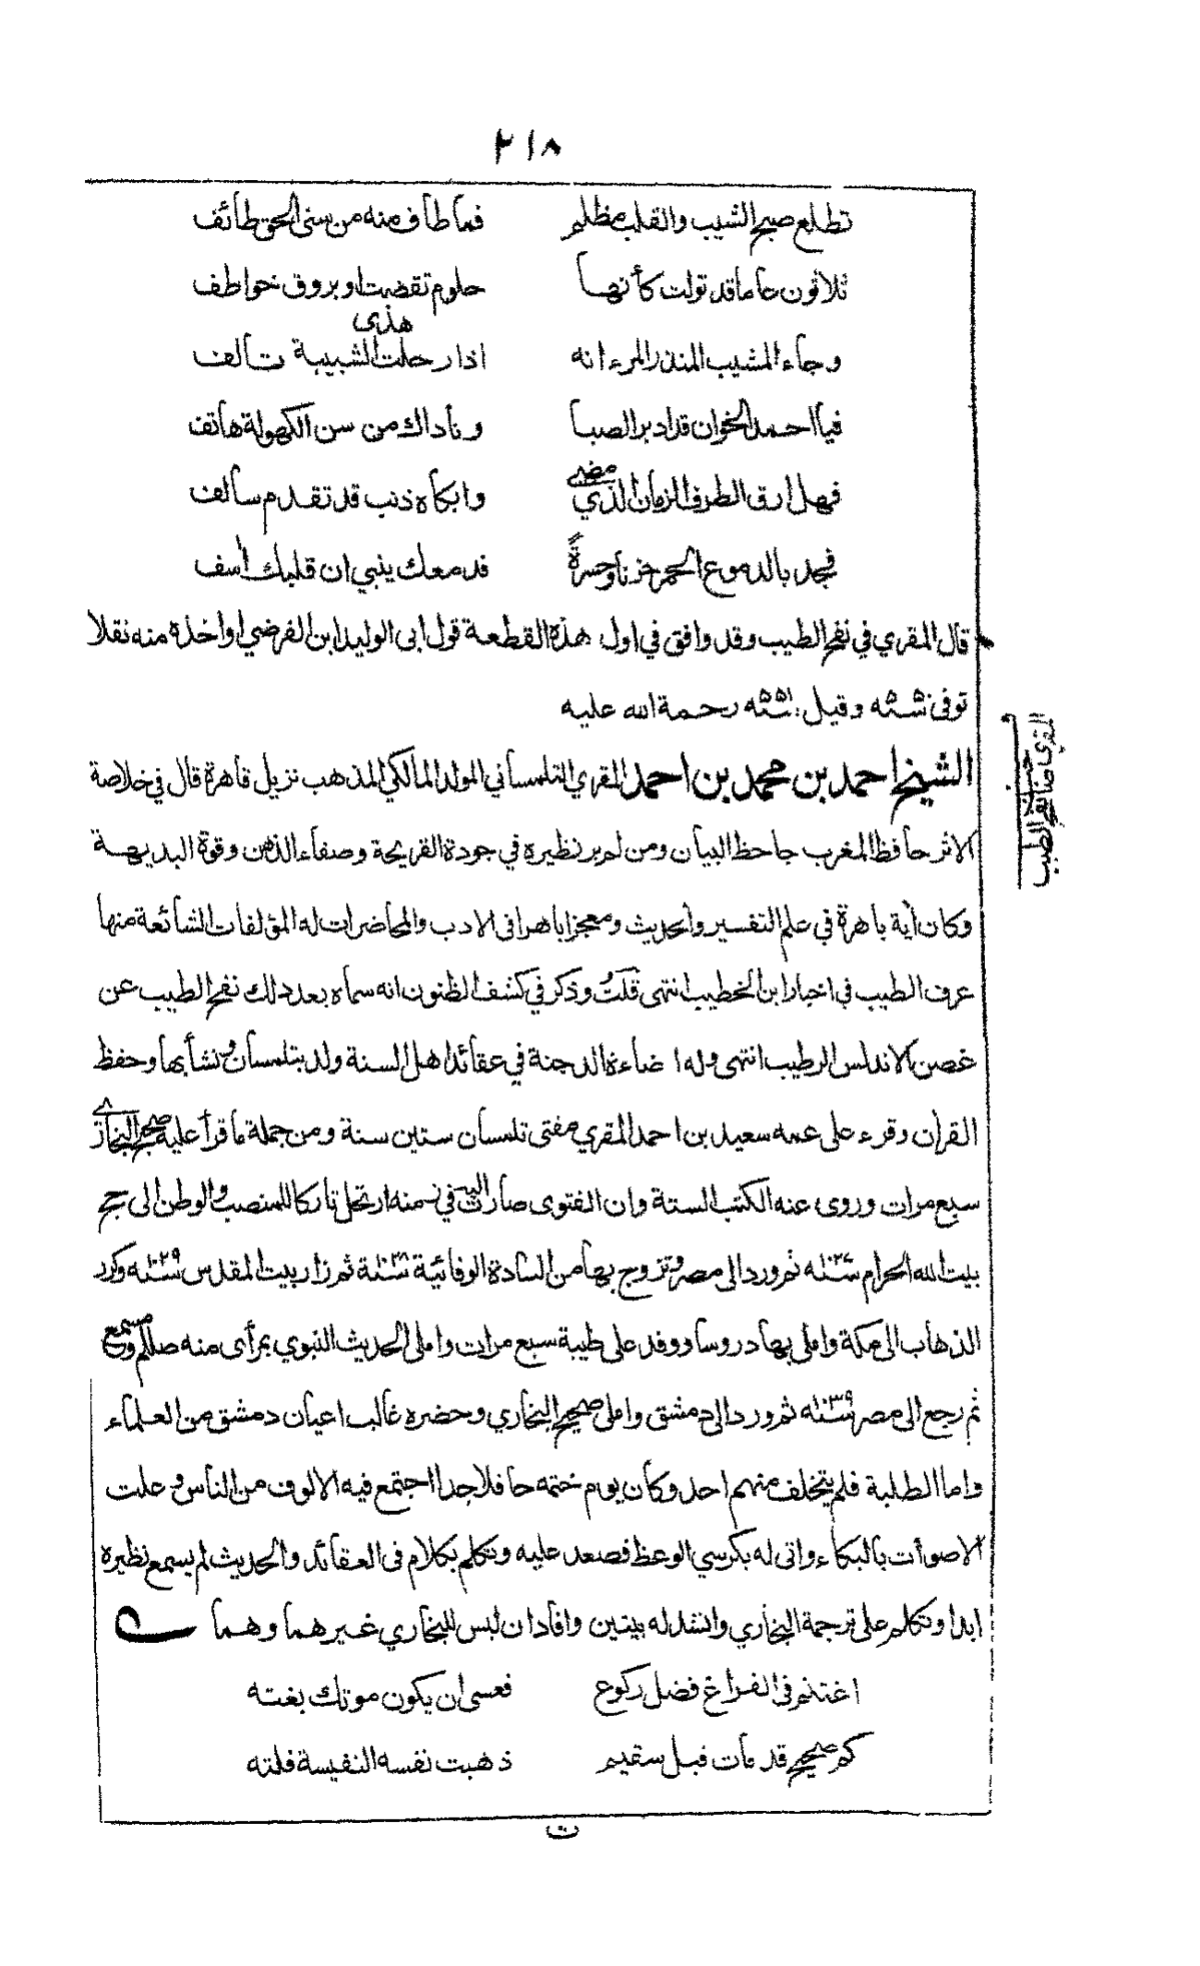 ٢١٨
تطلع صبح الشيب والقلب مظلم فما طاف منه من سنى الحق طائف
ثلاثون عاما قد تولت كأنها حلوم تقضت او بروق خواطف
وجاء المشيب المنذر المرء انه اذا رحلت هذى الشبيبة تالف
فيا احمد الخوان قد ادبر الصبا وناداك من سن الكهولة هاتف
فهل ارق الطرف الزمان الذي مضى وابكاه ذنب قد تقدم سالف
فجد بالدموع الحمر حزنا وحسرةً فدمعك ينبي ان قلبك اسف
قال المقري في نفح الطيب وقد وافق في اول هذه القطعة قول ابى الوليد ابن الفرضي او اخذه منه نقلا
توفى سنة ٥٥٠ وقيل سنة ٥٥١ رحمة الله عليه
الشيخ احمد بن محمد بن احمد المقري التلمساني المولد المالكي المذهب نزيل قاهرة قال في خلاصة
الاثر حافظ المغرب جاحظ البيان ومن لم ير نظيره في جودة القريحة وصفاء الذهن وقوة البديهة
وكان آية باهرة في علم التفسير والحديث ومعجزا باهرا في الادب والمحاضرات له المؤلفات الشائعة منها
عرف الطيب في اخبار ابن الخطيب انتهى قلت وذكر في كشف الظنون انه سماه بعد ذلك نفح الطيب عن
غصن الاندلس الرطيب انتهى وله اضاءة الدجنة في عقائد اهل السنة ولد بتلمسان ونشأ بها وحفظ
القران وقرء على عمه سعيد بن احمد المقري مفتى تلمسان ستين سنة ومن جملة ما قرأ عليه صحيح البخاري
سبع مرات وروى عنه الكتب الستة وان الفتوى صارت اليه في زمنه ارتحل تاركا للمنصب والوطن الى حج
بيت الله الحرام سنة ١٠٢٧ ثم ورد الى مصر وتزوج بها من السادة الوفائية سنة ١٠٢٨ ثم زار بيت المقدس سنة ١٠٢٩ وكرر
الذهاب الى مكة واملى بها دروسا ووفد على طيبة سبع مرات واملى الحديث النبوي بمرأى منه صللم ومسمع
ثم رجع الى مصر سنة ١٠٣٩ ثم ورد الى دمشق واملى صحيح البخاري وحضره غالب اعيان دمشق من العلماء
واما الطلبة فلم يتخلف منهم احد وكان يوم ختمه حافلا جدا اجتمع فيه الالوف من الناس وعلت
الاصوات بالبكاء واتى له بكرسي الوعظ فصعد عليه وتكلم بكلام فى العقائد والحديث لم يسمع نظيره
ابدا وتكلم على ترجمة البخاري وانشد له بيتين وافاد ان ليس للبخاري غيرهما وهما
اغتنم فى الفراغ فضل ركوع فعسى ان يكون موتك بغته
كم صحيح قد مات قبل سقيم ذهبت نفسه النفيسة فلته
ت
المقري صاحب نفح الطيب